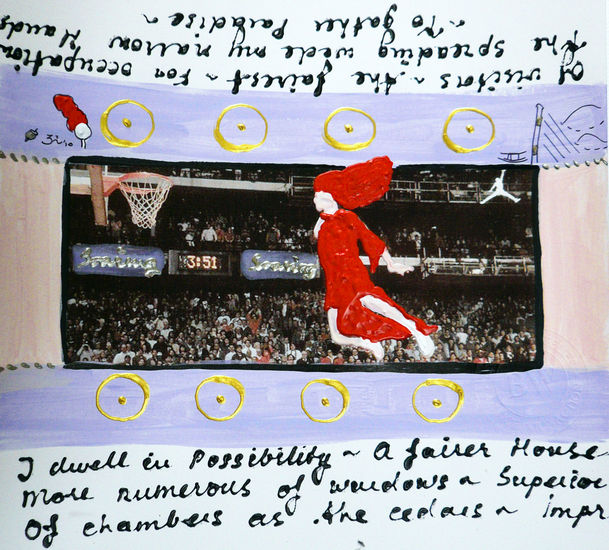 Of visitors ~ the fairest ~ For occupation
The spreading wide my narrow Hands
~ To gather Paradise ~
Soaring 3:51 Soaring
I dwell in Possibility ~ A fairer House
More numerous of windows ~ Superior
Of chambers as the cedars ~ impr